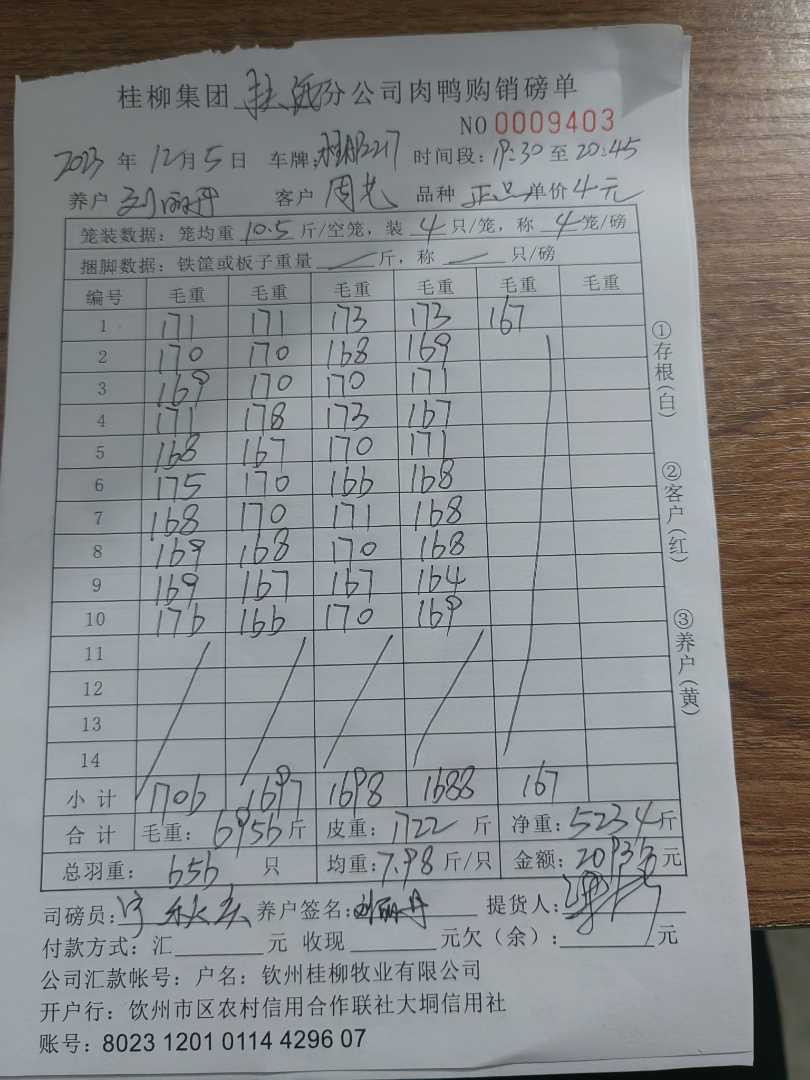 桂柳集团 扶绥分公司肉鸭购销磅单
NO 0009403
2023 年 12月5日 车牌:桂AB2217 时间段:19:30 至 20:45
养户 刘丽丹 客户 周光 品种 正品 单价 4元
笼装数据：笼均重 10.5 斤/空笼，装 4 只/笼，称 4 笼/磅
捆脚数据：铁筐或板子重量 斤，称 只/磅
编号 毛重 毛重 毛重 毛重 毛重 毛重
1 171 171 173 173 167
2 170 170 168 169
3 169 170 170 171
4 171 178 173 167
5 168 167 170 171
6 175 170 166 168
7 168 170 171 168
8 169 168 170 168
9 169 167 167 164
10 176 166 170 169
11
12
13
14
小计 1706 1697 1698 1688 167
合计 毛重：6956斤 皮重：1722 斤 净重：5234斤
总羽重： 656 只 均重：7.98 斤/只 金额：20936元
司磅员： 养户签名：刘丽丹 提货人：
付款方式：汇 元 收现 元欠（余）： 元
公司汇款帐号：户名：钦州桂柳牧业有限公司
开户行：饮州市区农村信用合作联社大垌信用社
账号：8023 1201 0114 4296 07
①存根(白)
②客户(红)
③养户(黄)